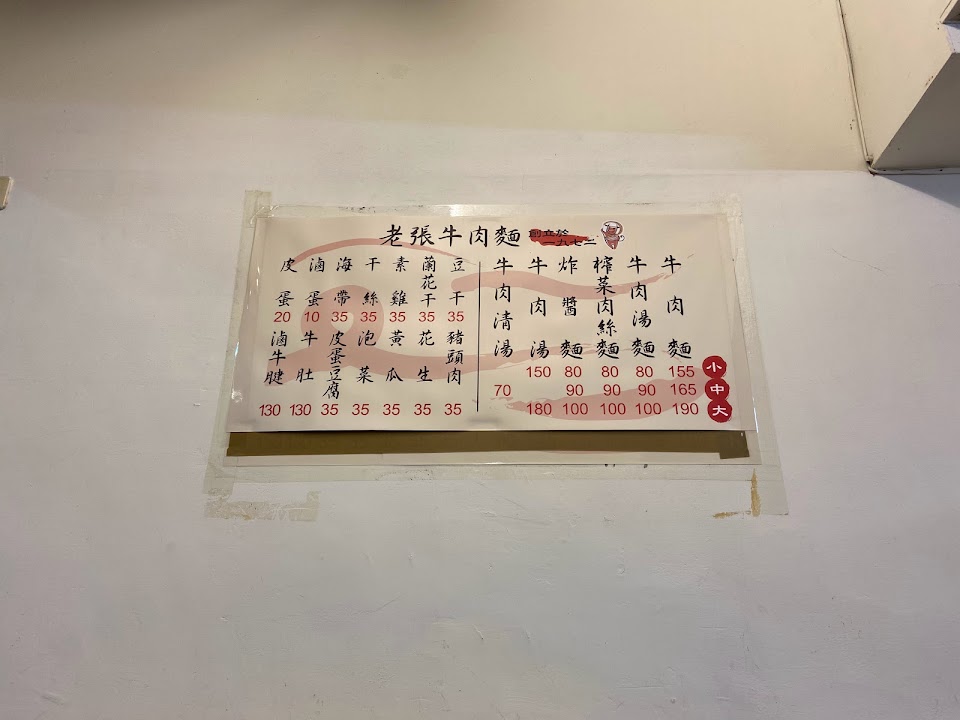 老張牛肉麵 創立於
一九七二
牛肉麵 155 165 190
牛肉湯麵 80 90 100
榨菜肉絲麵 80 90 100
炸醬麵 80 90 100
牛肉湯 150 180
牛肉清湯 70
小
中
大
豆干 35
蘭花干 35
素雞 35
干絲 35
海帶 35
滷蛋 10
皮蛋 20
豬頭肉 35
花生 35
黃瓜 35
泡菜 35
皮蛋豆腐 35
牛肚 130
滷牛腱 130